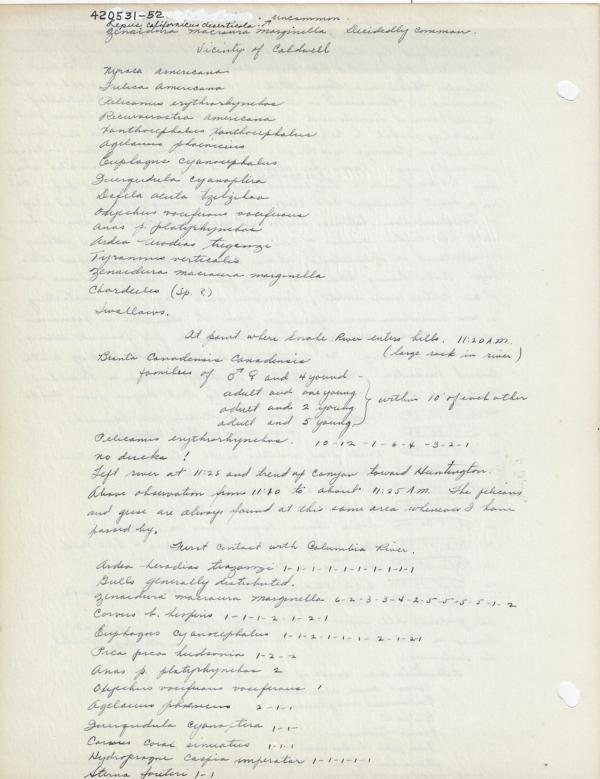 420531-52
Lepus californicus deserticola. uncommon.
Zenaidura macroura marginella. Decidedly common.
Vicinity of Caldwell
Nyroca americana
Fulica americana
Pelicanus erythrorhynchos
Recurvirostra americana
Xanthocephalus xanthocephalus
Agelaius phoenicius
Euphagus cyanocephalus
Querquedula cyanoptera
Dafila acuta tzitzihoa
Oxyechus vociferous vociferous
Anas p. platyrhynchos
Ardea herodias treganzi
Tyrannus verticalis
Zenaidura macroura marginella
Chordeiles (Sp. ?)
Swallows.
At point where Snake River enters hills. 11:20 A.M.
Branta Canadensis Canadensis (large rock in river)
families of ♂ ♀ and 4 young -
adult and one young
adult and 2 young
adult and 5 young
within 10' of each other
Pelicanus erythrorhynchos. 10-12-1-6-4-3-2-1
no ducks!
Left river at 11:25 and trend up canyon toward Huntington.
Above observation from 11:40 to about 11:25 A.M. The pelicans
and geese are always found at this same area whenever I have
passed by.
First contact with Columbia River.
Ardea herodias treganzi 1-1-1-1-1-1-1-1-1-1
Gulls generally distributed.
Zenaidura macroura marginella 6-2-3-3-4-2-5-5-5-5-1-2
Corvus b. hesperis 1-1-1-2-1-2-1
Euphagus cyanocephalus 1-1-2-1-1-1-2-1-21
Pica pica hudsonia 1-2-2
Anas p. platyrhynchos 2
Oxyechus vociferous vociferous 1
Agelaius phoenicius 2-1-1
Querquedula cyanoptera 1-1-
Corvus corax sinuatus 1-1-1
Hydroprogne Caspia imperator 1-1-1-1-1
Sterna forsteri 1-1